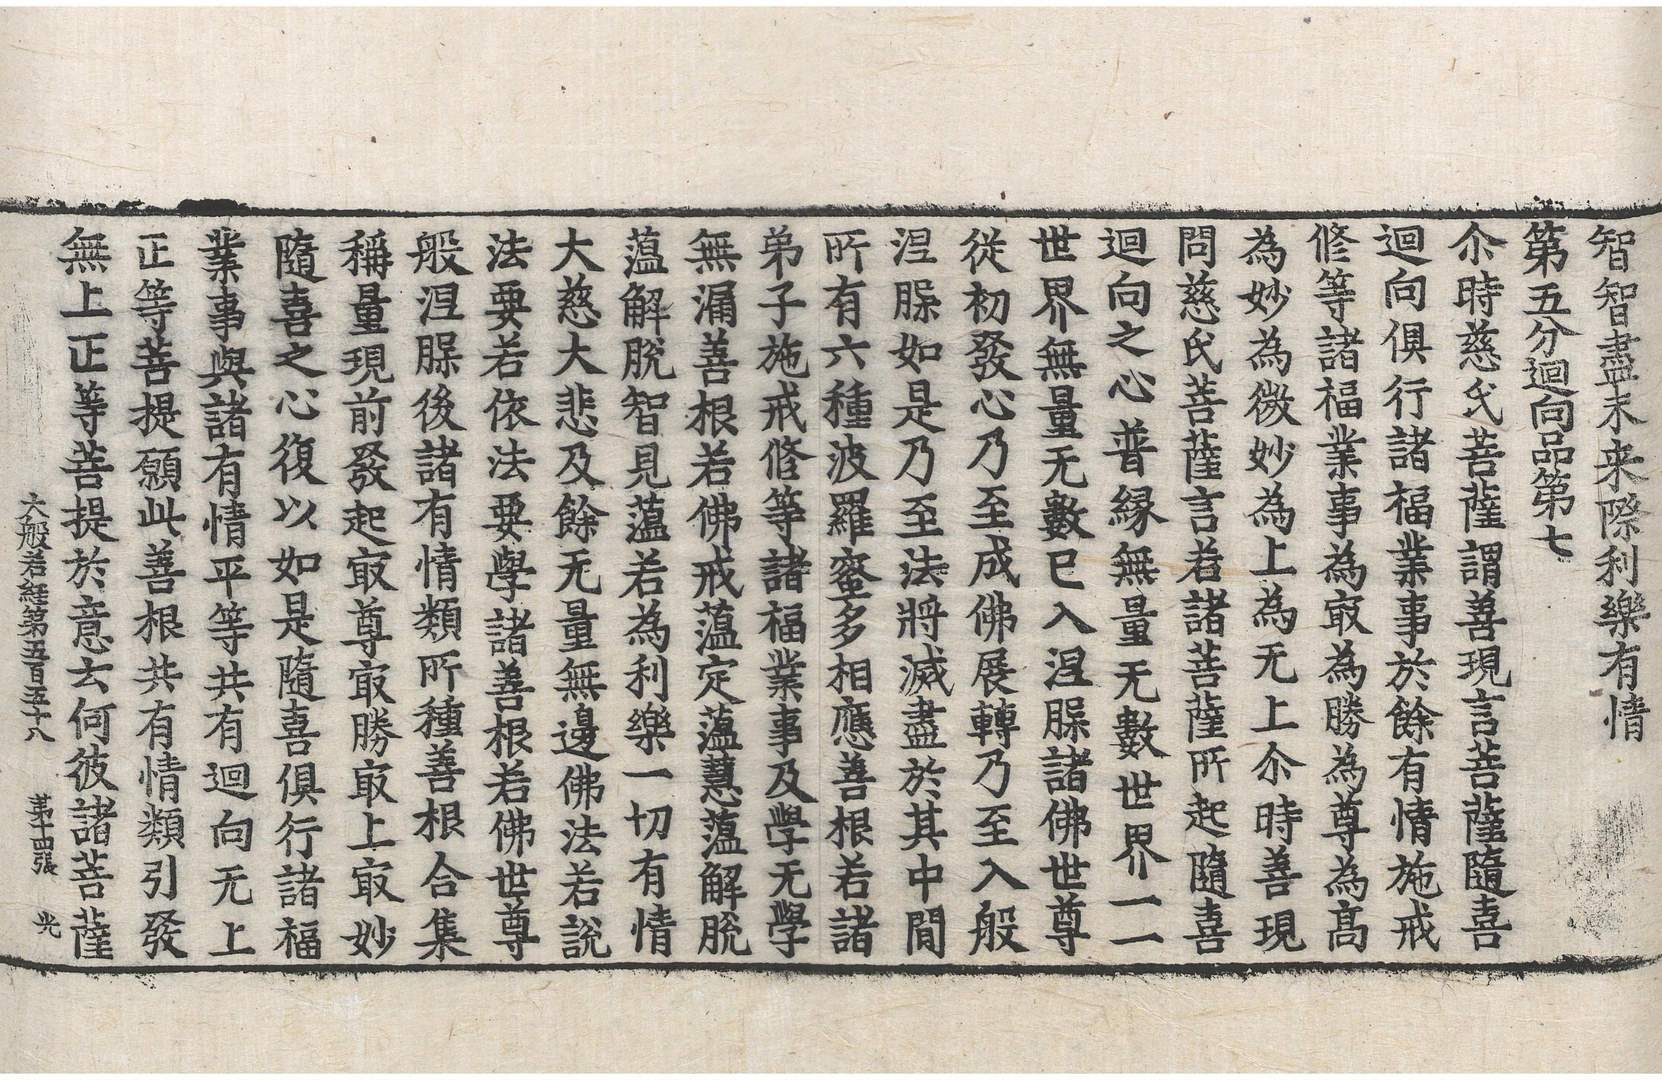 智智盡未来際利樂有情
第五分迴向品第七
尒時慈氏菩薩謂善現言菩薩隨喜
迴向俱行諸福業事於餘有情施戒
修等諸福業事為㝡為勝為尊為髙
為妙為微妙為上為无上尒時善現
問慈氏菩薩言若諸菩薩所起隨喜
迴向之心普緣無量无數世界一一
世界無量无數已入涅槃諸佛世尊
從初發心乃至成佛展轉乃至入般
涅槃如是乃至法將滅盡於其中間
所有六種波羅蜜多相應善根若諸
弟子施戒修等諸福業事及學无學
無漏善根若佛戒蘊定蘊慧蘊解脫
蘊解脫智見蘊若為利樂一切有情
大慈大悲及餘无量無邊佛法若說
法要若依法要學諸善根若佛世尊
般涅槃後諸有情類所種善根合集
稱量現前發起㝡尊㝡勝㝡上㝡妙
隨喜之心復以如是隨喜俱行諸福
業事與諸有情平等共有迴向无上
正等菩提願此善根共有情類引發
無上正等菩提於意云何彼諸菩薩
大般若経第五百五十八 第十四張 光